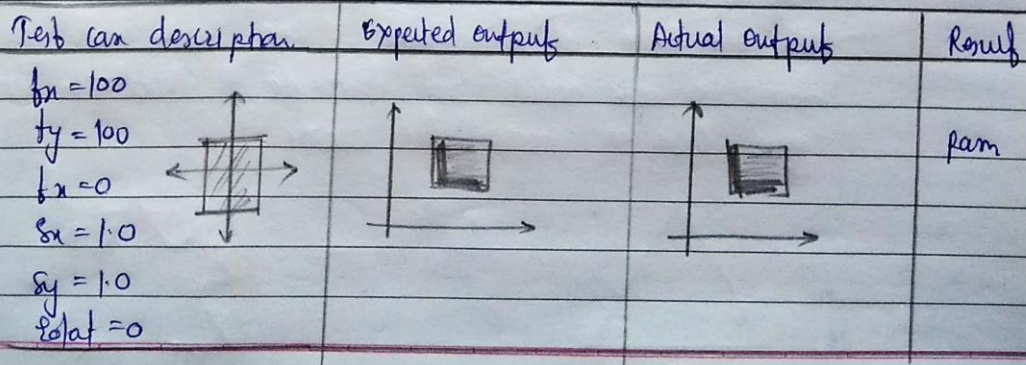 Test case description Expected outputs Actual outputs Result
tx = 100
ty = 100 pass
tx = 0
Sx = 1.0
Sy = 1.0
rotat = 0